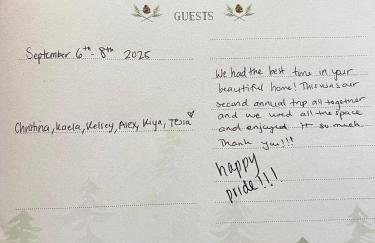 GUESTS
September 6th - 8th 2025
Christina, Kaela, Kelsey, Alex, Kiya, Tesia
We had the best time in your
beautiful home! This was our
second annual trip all together
and we used all the space
and enjoyed it so much.
Thank you!!!
happy
pride!!!!